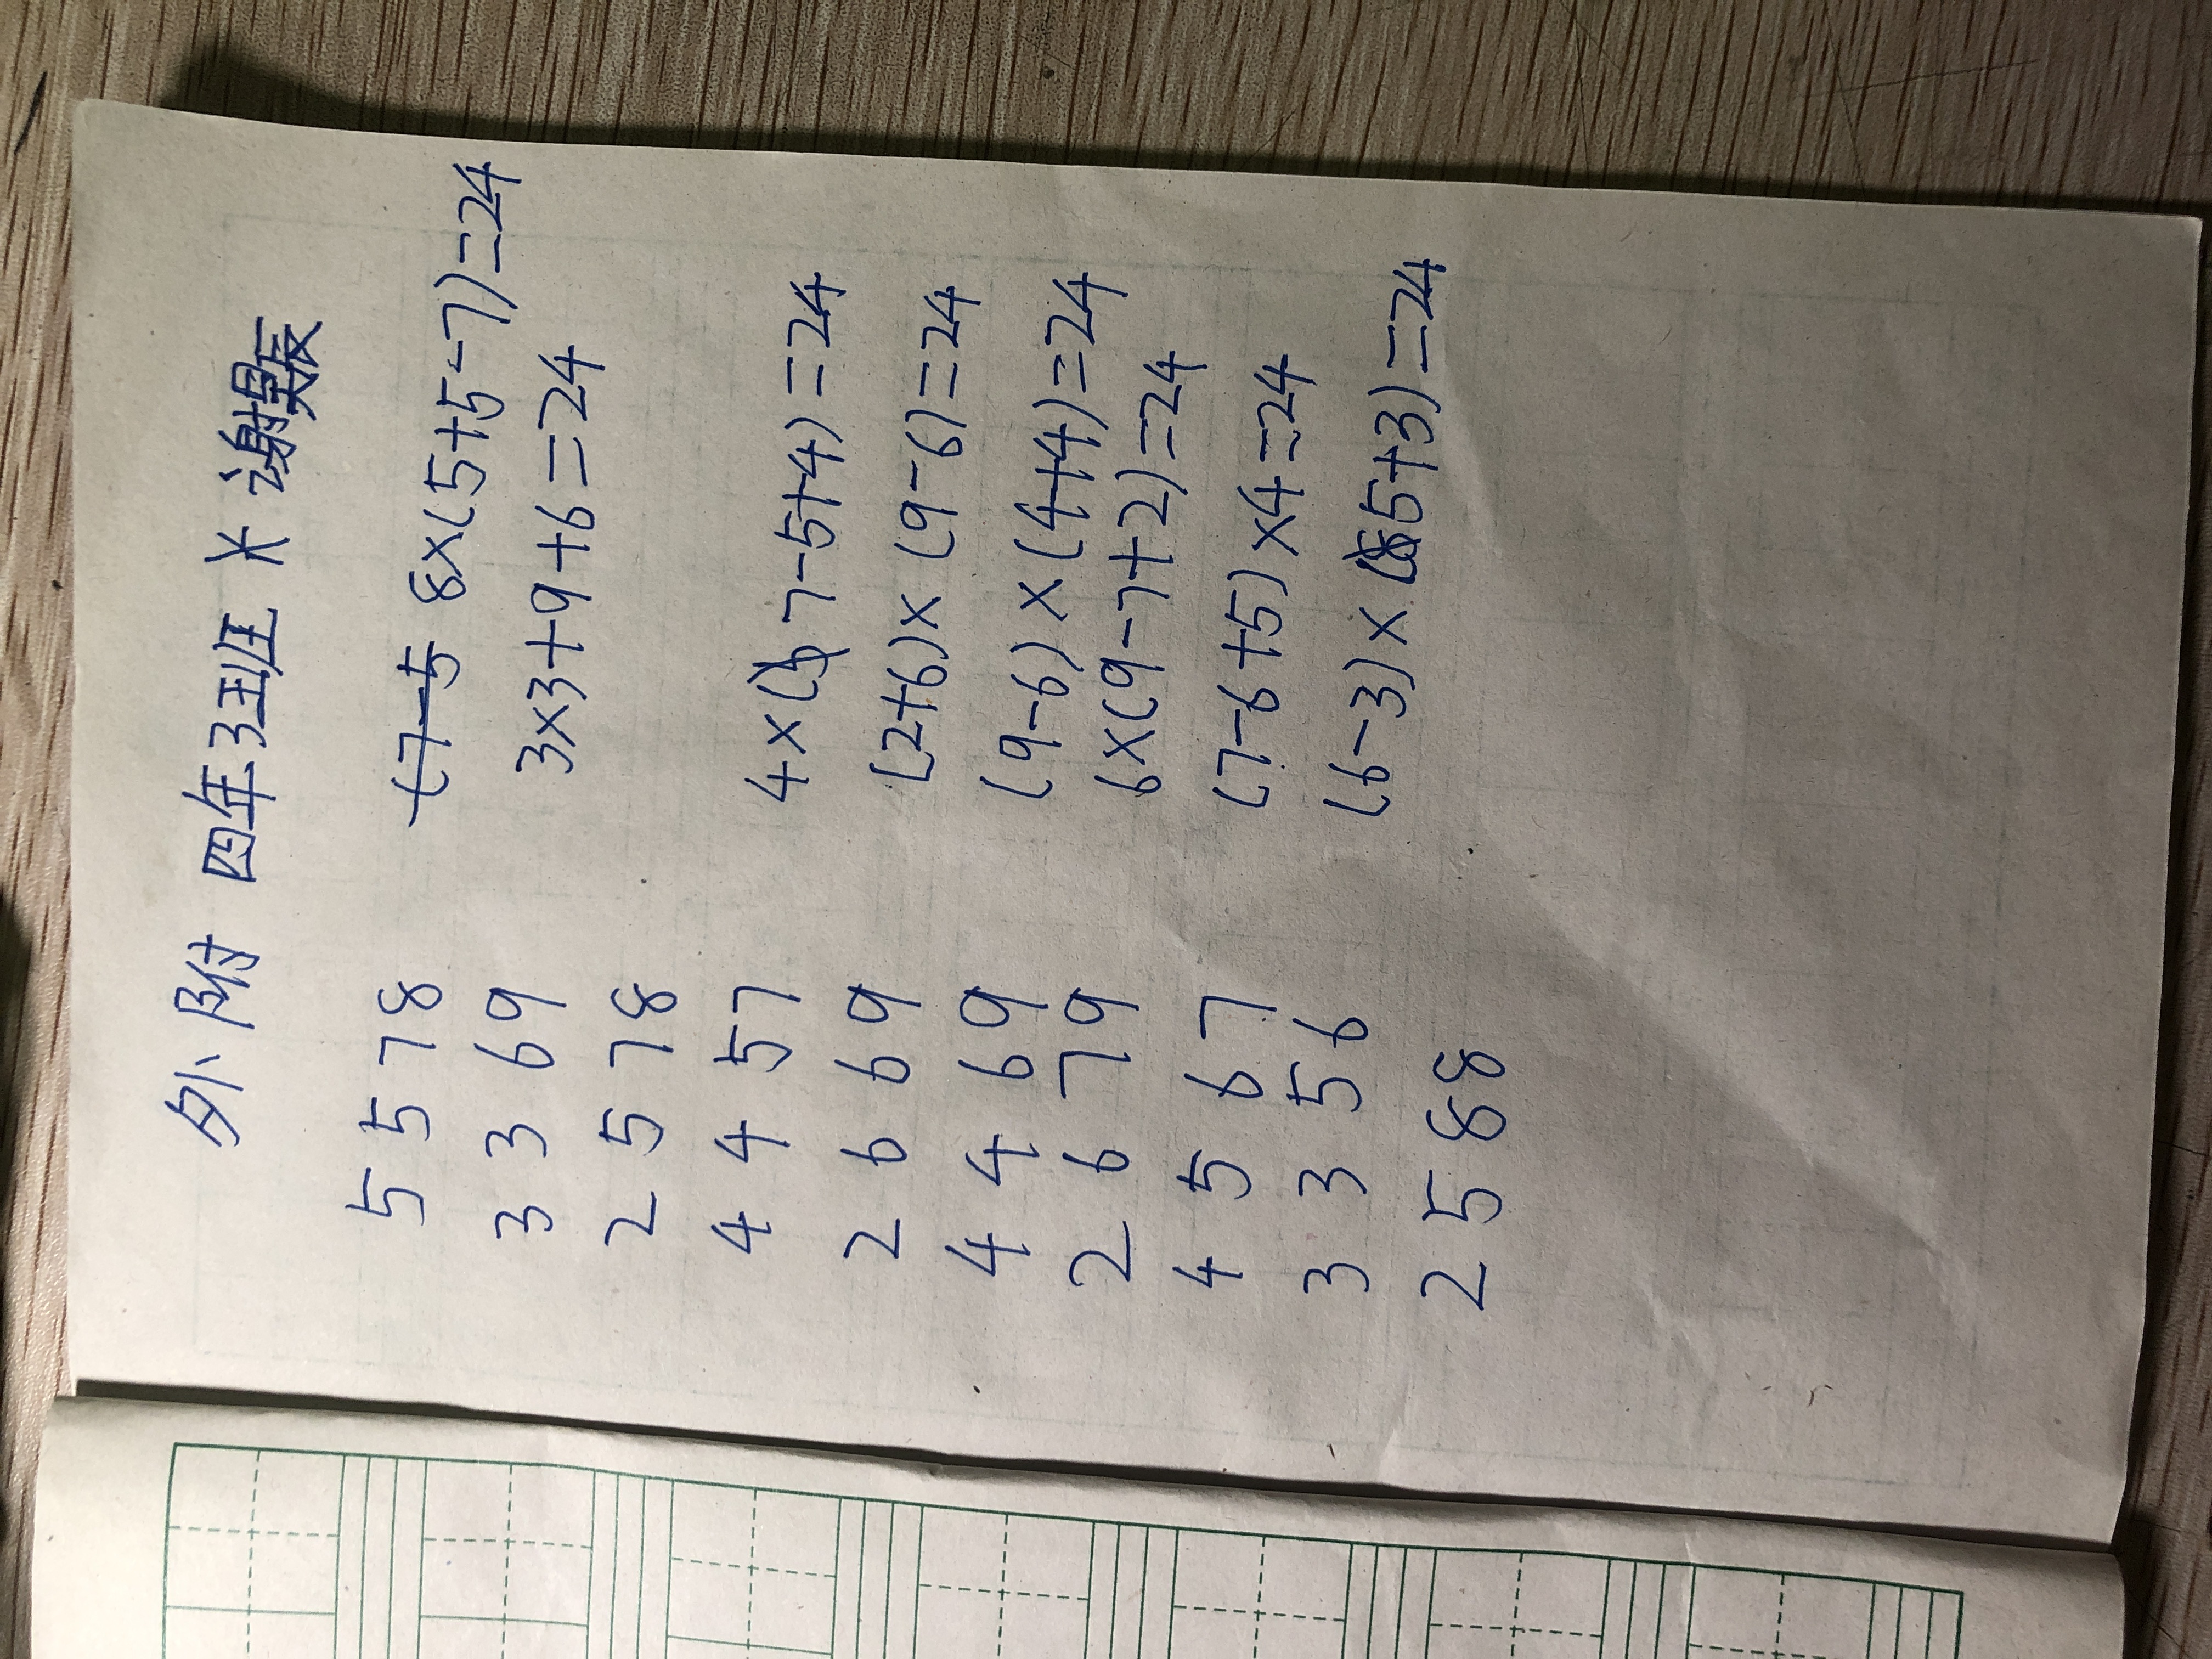 外附 四年3班 米 谢昊辰
5 5 7 8 (7-5 8×(5+5-7)=24
3 3 6 9 3×3+9+6=24
2 5 7 8
4 4 5 7 4×(7-5+4)=24
2 6 6 9 (2+6)×(9-6)=24
4 4 6 9 (9-6)×(4+4)=24
2 6 7 9 6×(9-7+2)=24
4 5 6 7 (7-6+5)×4=24
3 3 5 6 (6-3)×(5+3)=24
2 5 8 8